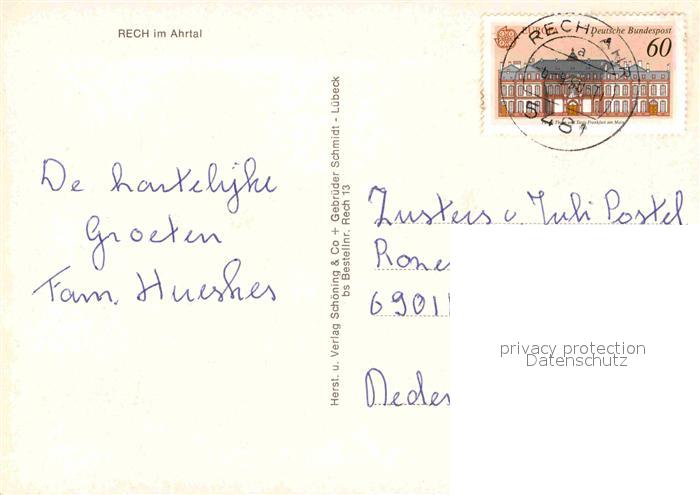 RECH im Ahrtal
EUROPA Deutsche Bundespost
60
RECH, AHR
a
5481
De hartelijke
Groeten
Fam. Hueskes
Herst. u. Verlag Schöning & Co + Gebrüder Schmidt - Lübeck
bs Bestellnr. Rech 13
Zusters v. Juli Postel
6901
privacy protection
Datenschutz